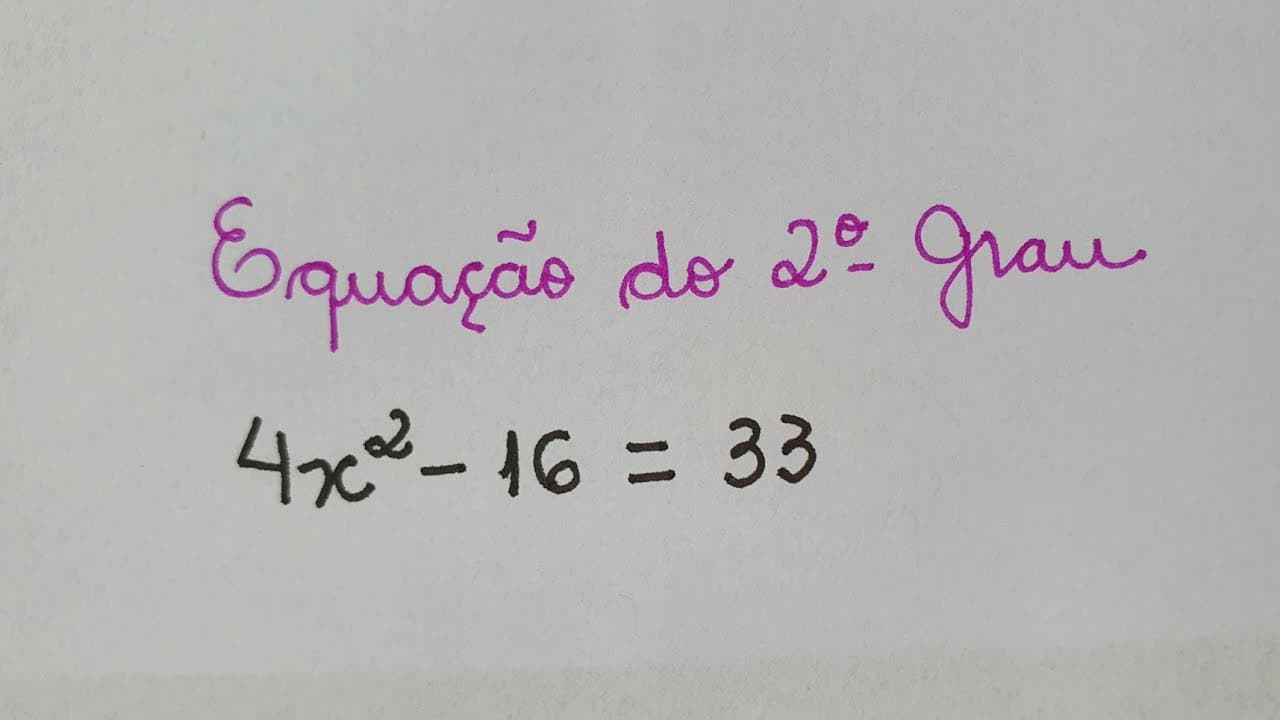 Equação do 2º Grau
4x² - 16 = 33